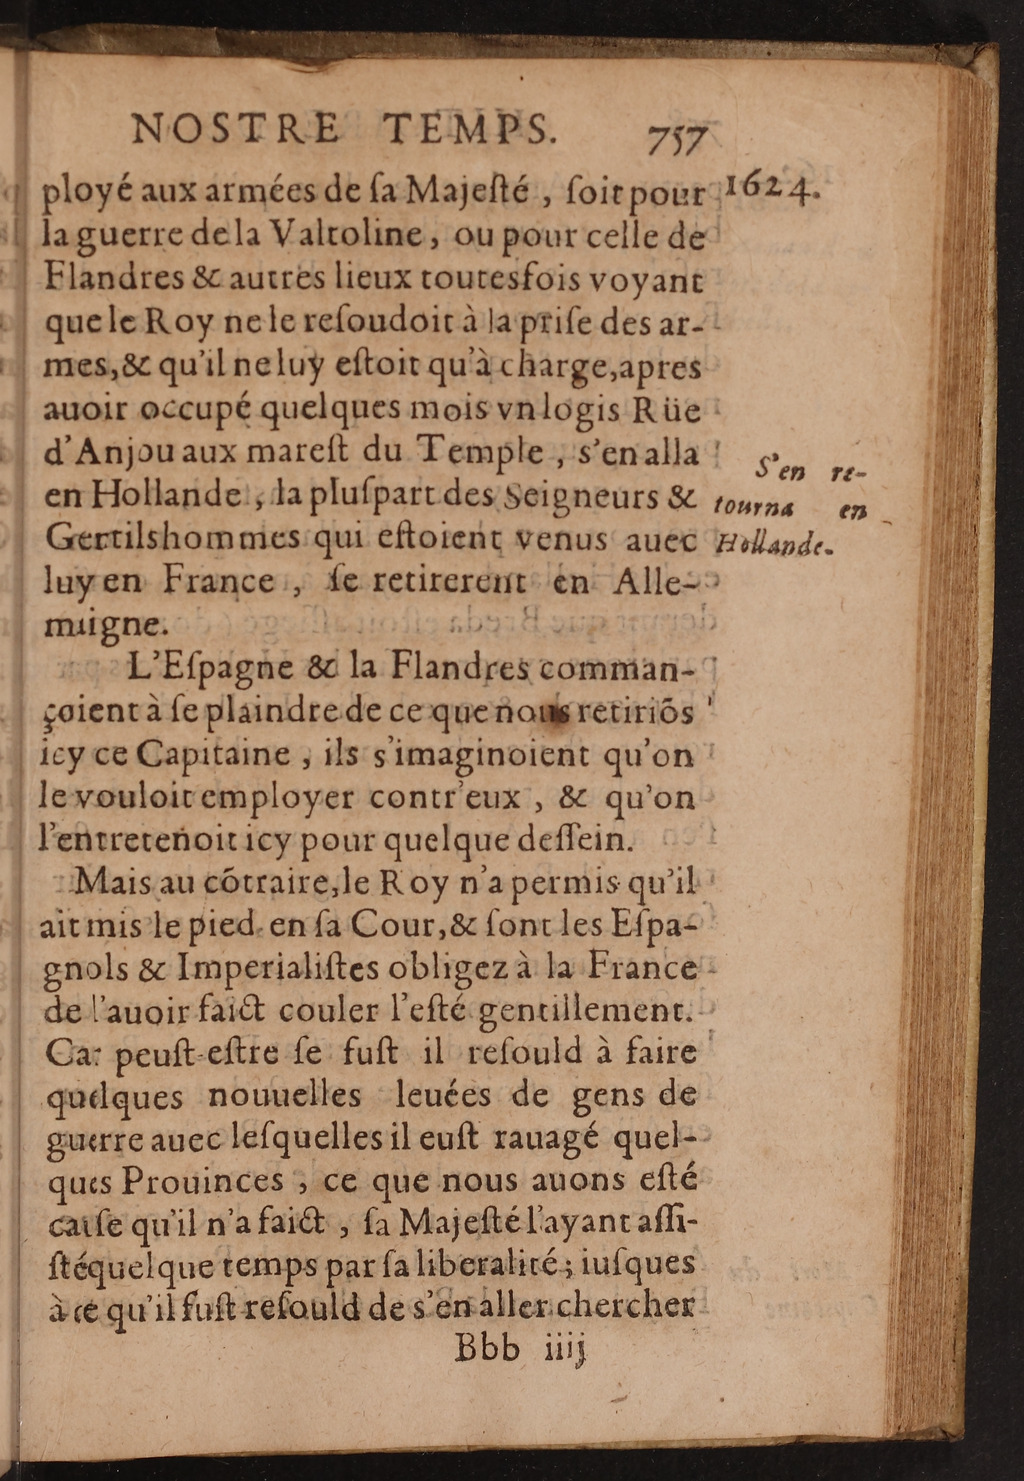 NOSTRE TEMPS. 757
ployé aux armées de ſa Majeſté , ſoit pour 1624.
la guerre de la Valtoline, ou pour celle de
Flandres & autres lieux toutesfois voyant
que le Roy ne le reſoudoit à la priſe des ar-
mes, & qu'il ne luy eſtoit qu'à charge, apres
auoir occupé quelques mois vn logis Rüe
d'Anjou aux mareſt du Temple , s'en alla
S'en re-
en Hollande , la pluſpart des Seigneurs &
tourna en
Gertilshommes qui eſtoient venus auec
Hollande.
luy en France , ſe retirerent en Alle-
maigne.
L'Eſpagne & la Flandres comman-
çoient à ſe plaindre de ce que nous retiriõs
icy ce Capitaine , ils s'imaginoient qu'on
le vouloit employer contr'eux , & qu'on
l'entretenoit icy pour quelque deſſein.
Mais au cõtraire, le Roy n'a permis qu'il
ait mis le pied en ſa Cour, & ſont les Eſpa-
gnols & Imperialiſtes obligez à la France
de l'auoir faict couler l'eſté gentillement.
Car peuſt-eſtre ſe fuſt il reſould à faire
quelques nouuelles leuées de gens de
guerre auec leſquelles il euſt rauagé quel-
ques Prouinces , ce que nous auons eſté
cauſe qu'il n'a faict , ſa Majeſté l'ayant aſſi-
ſté quelque temps par ſa liberalité ; iuſques
à ce qu'il fuſt reſould de s'en aller chercher
Bbb iiij